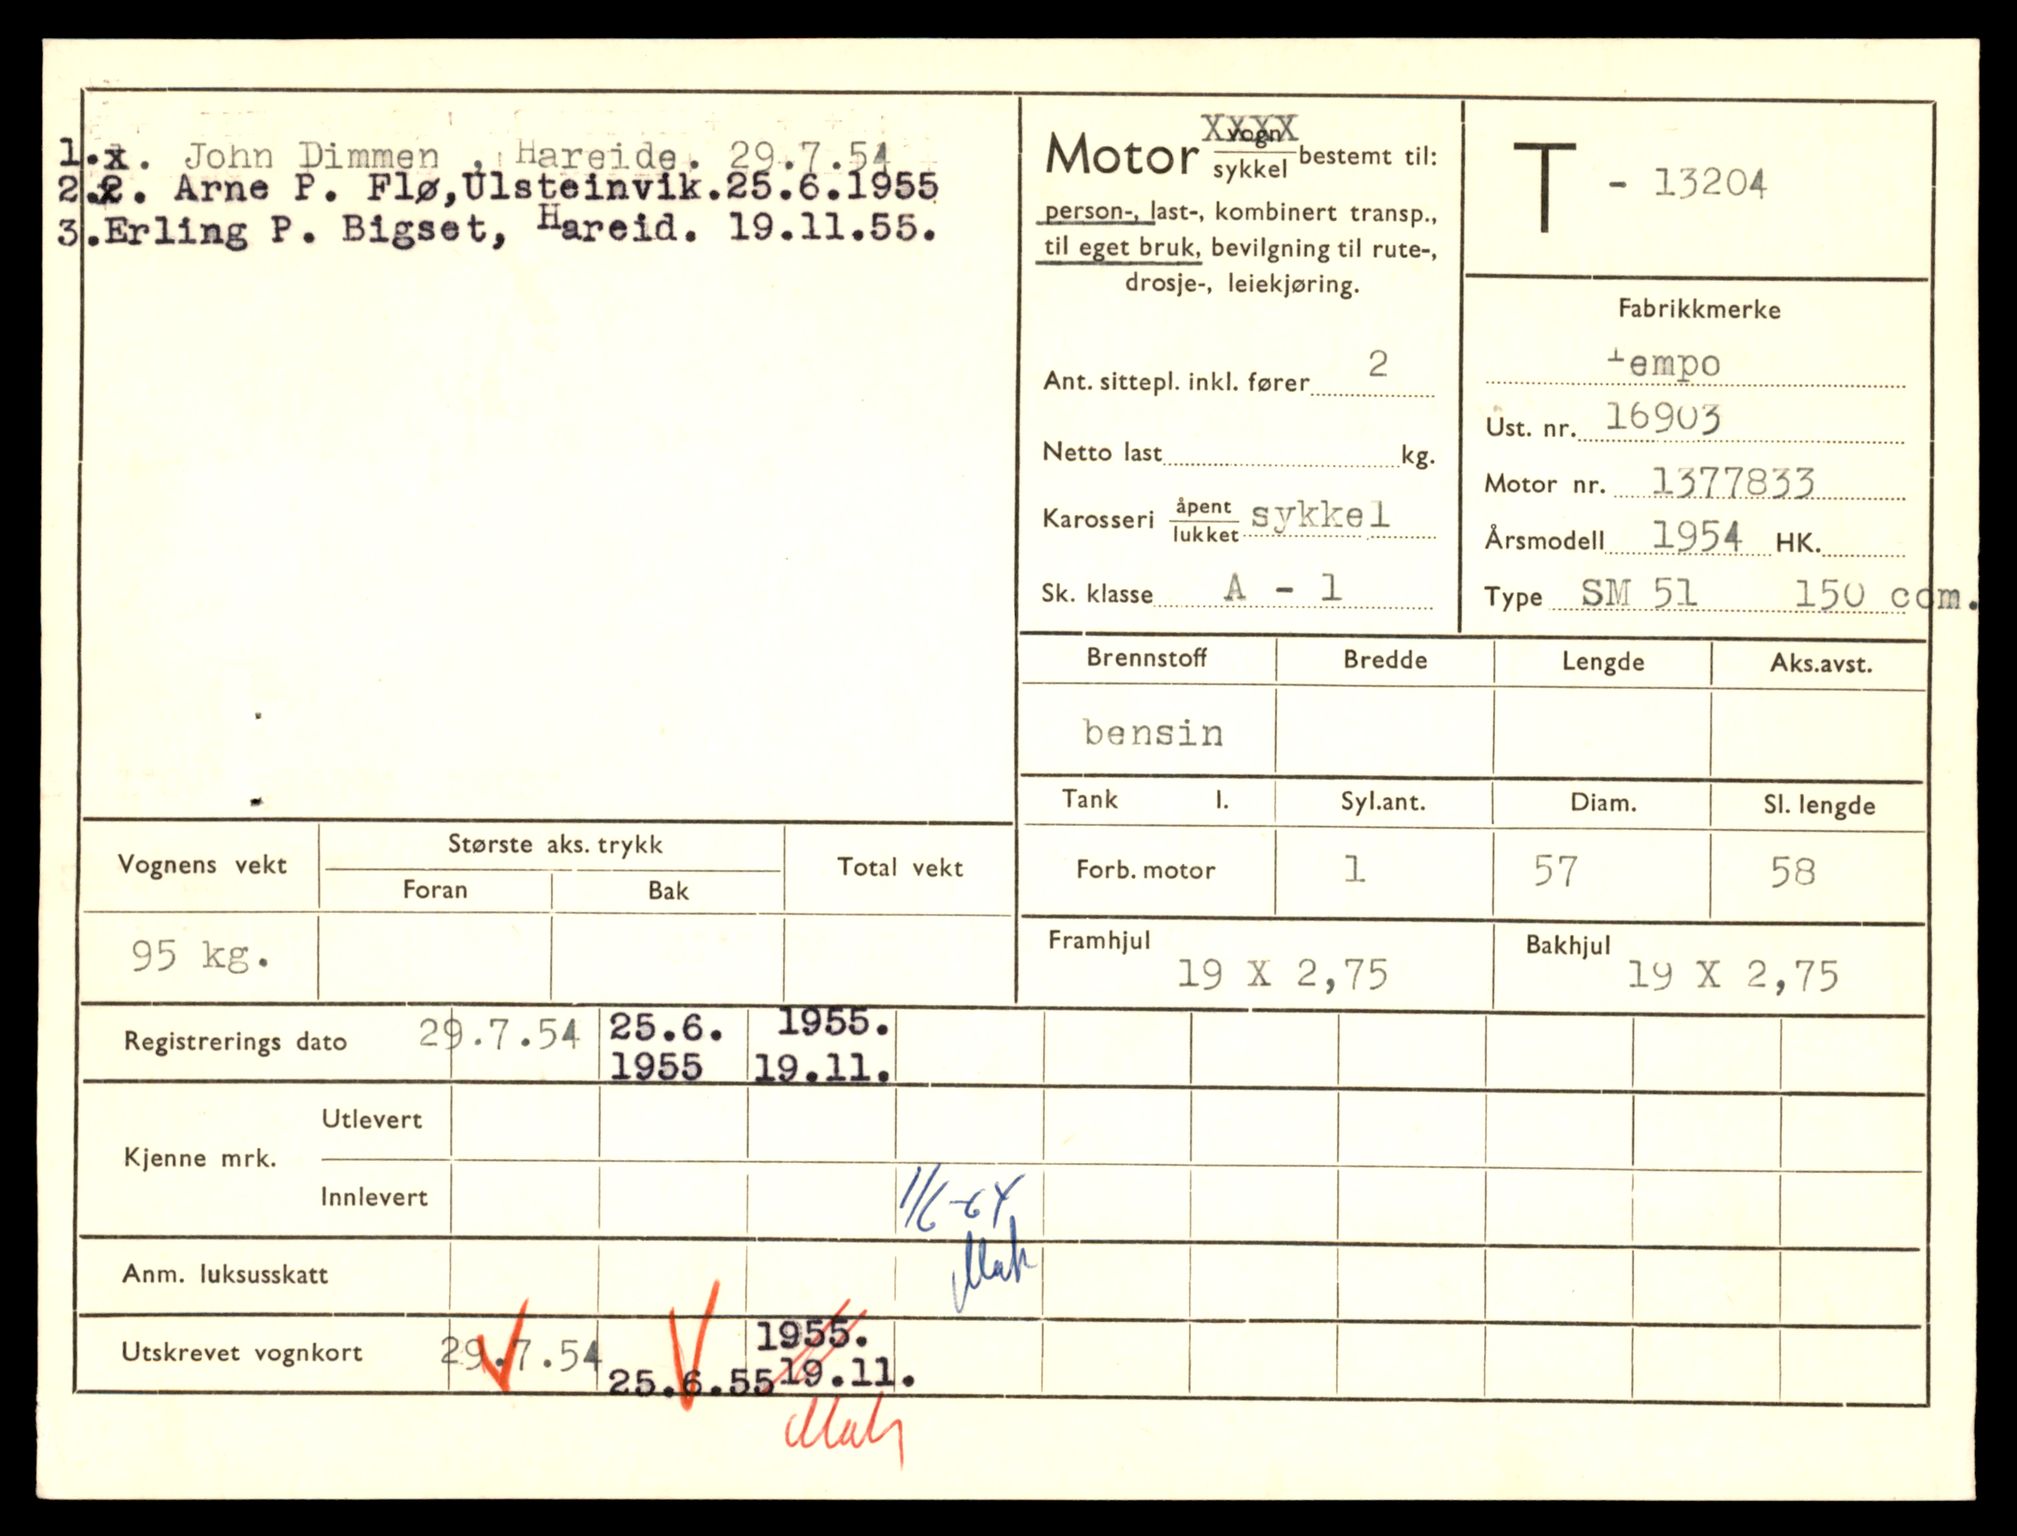 1.x. John Dimmen , Hareide. 29.7.54
2.2. Arne P. Flø,Ulsteinvik.25.6.1955
3.Erling P. Bigset, Hareid. 19.11.55.
Motor vogn XXXX / sykkel bestemt til:
person-, last-, kombinert transp.,
til eget bruk, bevilgning til rute-,
drosje-, leiekjøring.
Ant. sittepl. inkl. fører 2
Netto last kg.
Karosseri åpent / lukket sykkel
Sk. klasse A - 1
T - 13204
Fabrikkmerke
Tempo
Ust. nr. 16903
Motor nr. 1377833
Årsmodell 1954 HK.
Type SM 51 150 ccm.
Brennstoff Bredde Lengde Aks.avst.
bensin
Tank l. Syl.ant. Diam. Sl. lengde
Forb. motor 1 57 58
Framhjul 19 X 2,75 Bakhjul 19 X 2,75
Vognens vekt Største aks. trykk Total vekt
Foran Bak
95 kg.
Registrerings dato 29.7.54 25.6. 1955.
1955 19.11.
Kjenne mrk. Utlevert
Innlevert 1/6-64
Anm. luksusskatt
Utskrevet vognkort 29.7.54 25.6.55 1955.
19.11.